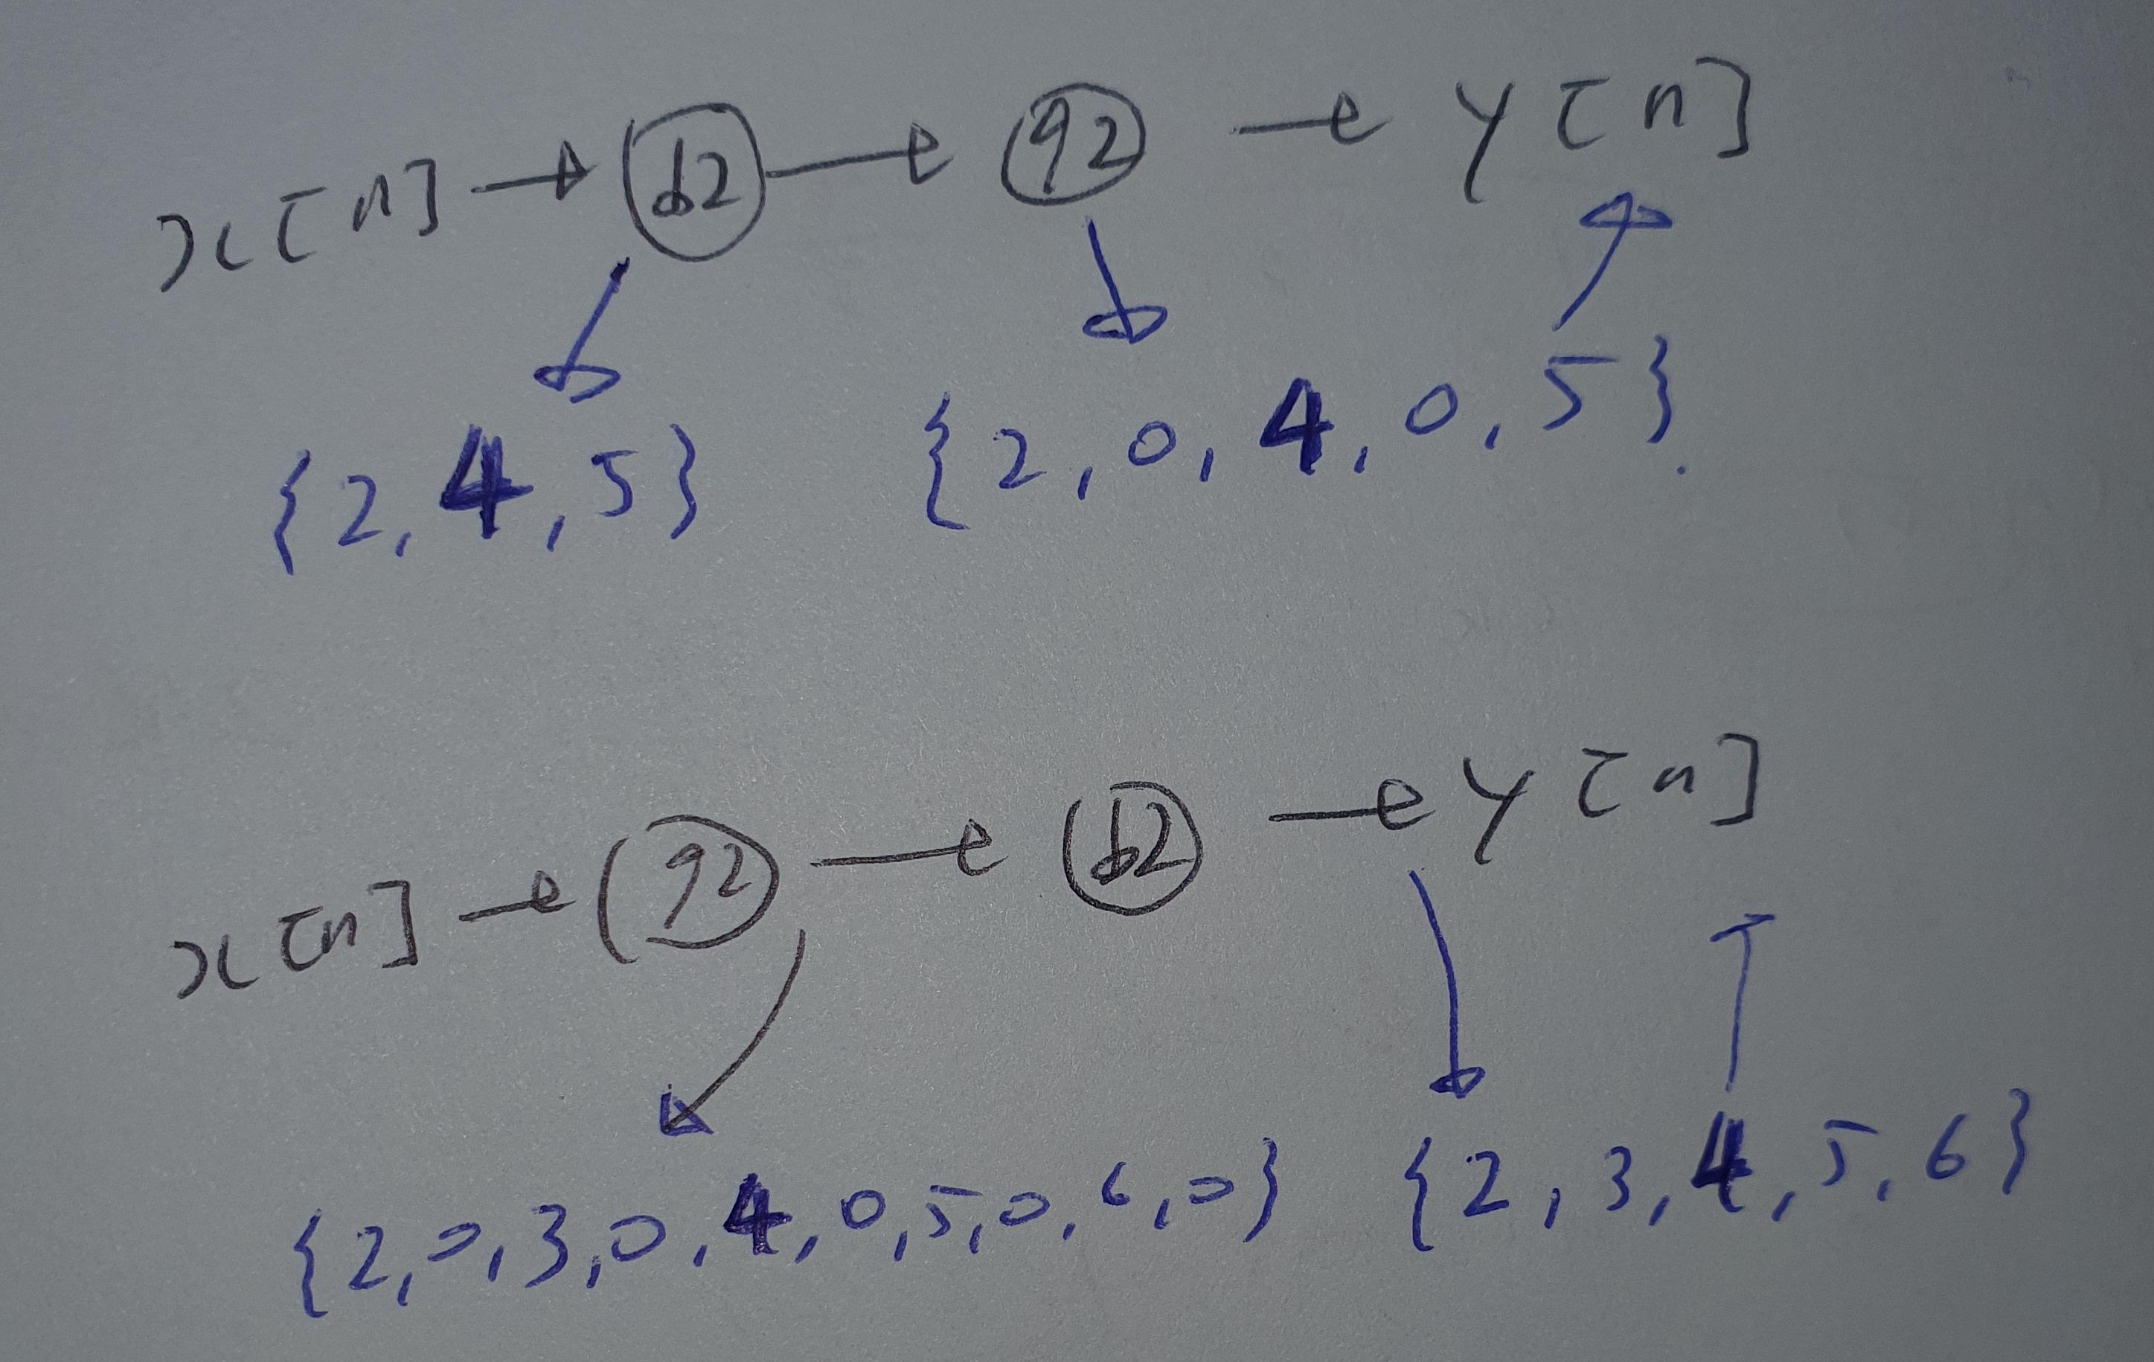 x[n] → ↓2 → ↑2 → y[n]
{2, 4, 5} {2, 0, 4, 0, 5}
x[n] → ↑2 → ↓2 → y[n]
{2, 0, 3, 0, 4, 0, 5, 0, 6, 0} {2, 3, 4, 5, 6}